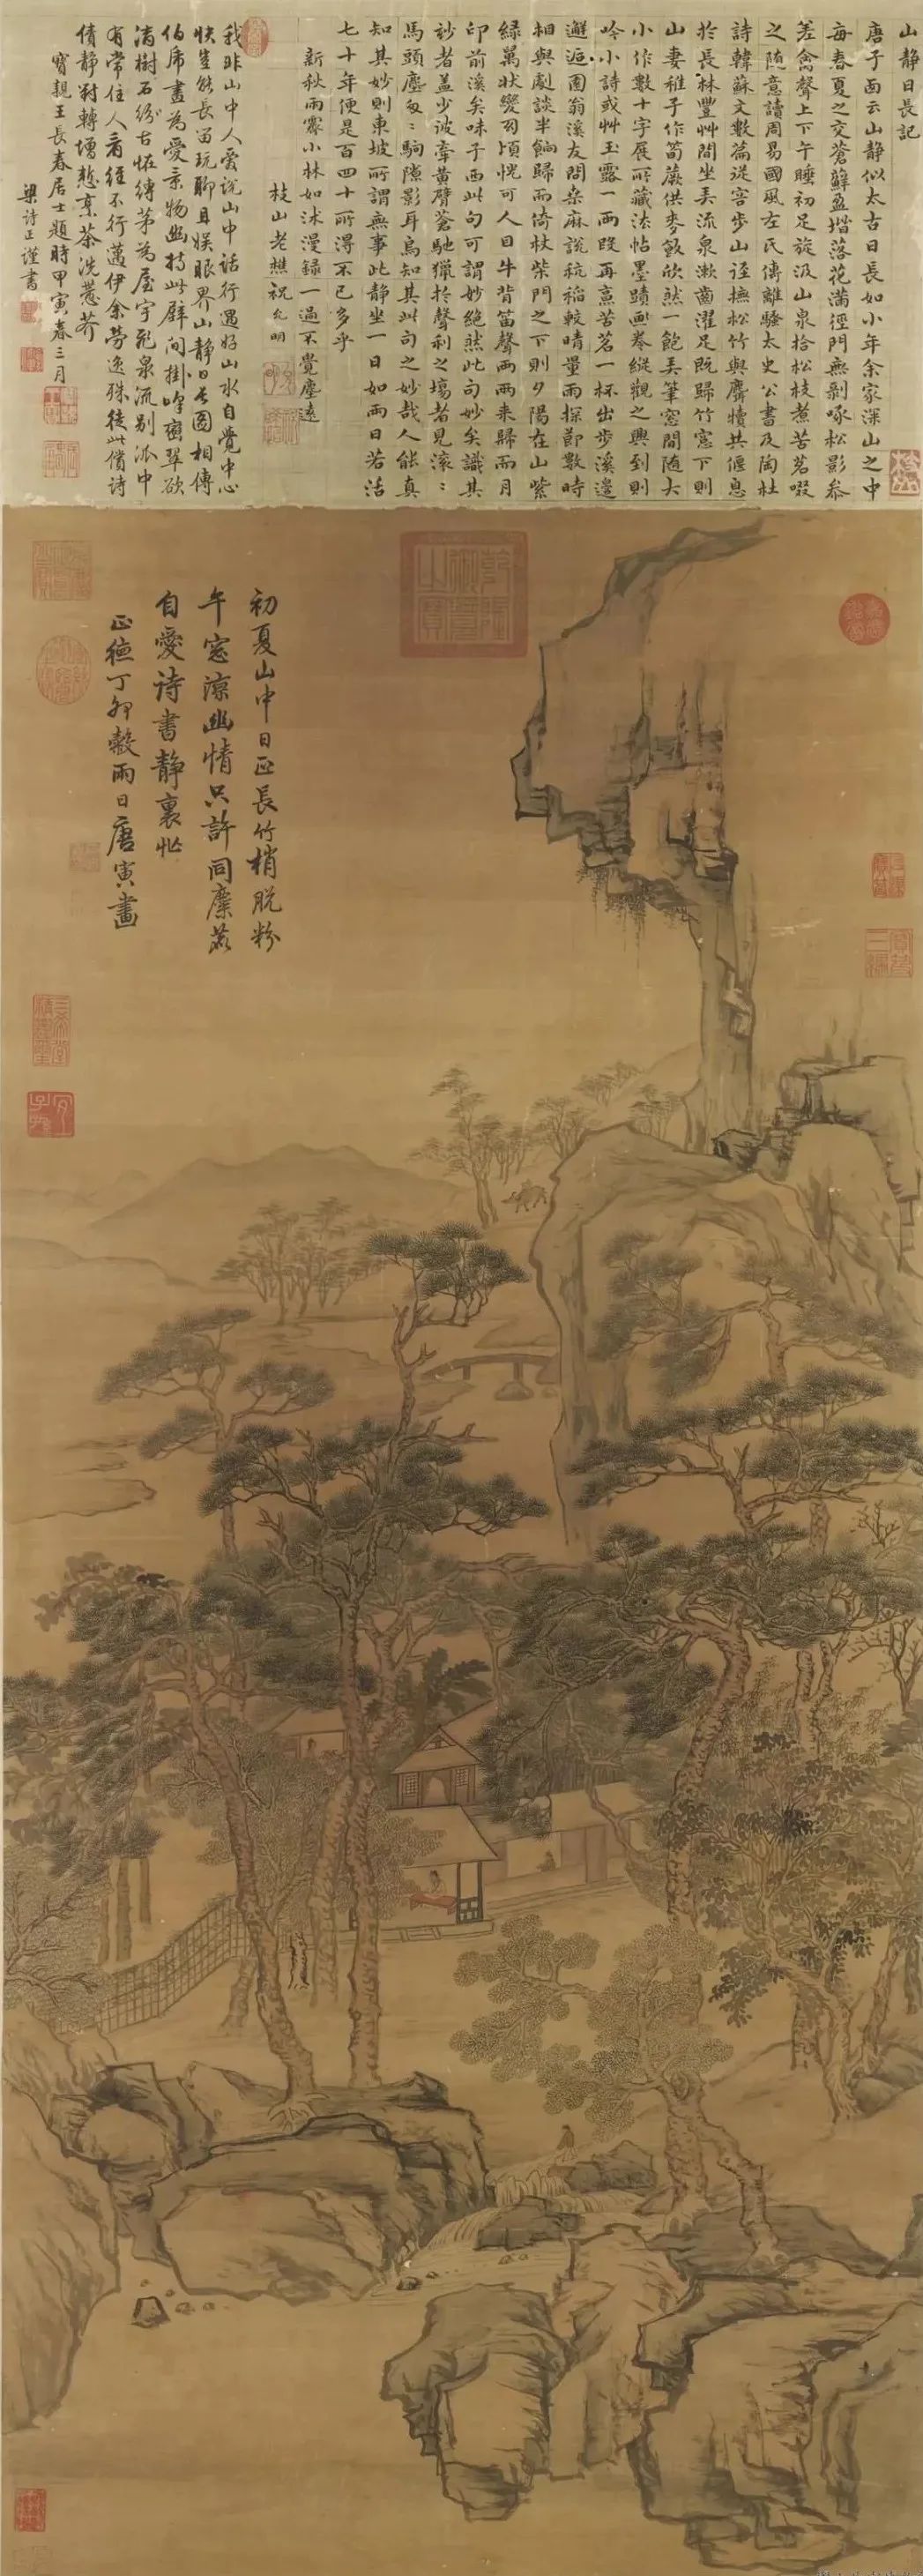 山靜日長記
唐子西云山靜似太古日長如小年余家深山之中
每春夏之交蒼蘚盈堦落花滿徑門無剝啄松影參
差禽聲上下午睡初足旋汲山泉拾松枝煮苦茗啜
之隨意讀周易國風左氏傳離騷太史公書及陶杜
詩韓蘇文數篇從容步山逕撫松竹與麛犢共偃息
於長林豐艸間坐弄流泉漱齒濯足既歸竹窓下則
山妻稚子作筍蕨供麥飯欣然一飽弄筆窓間隨大
小作數十字展所藏法帖墨蹟畫卷縱觀之興到則
吟小詩或艸玉露一兩段再烹苦茗一杯出步溪邊
邂逅園翁溪友問桑麻說秔稻較晴量雨探節數時
相與劇談半餉歸而倚杖柴門之下則夕陽在山紫
綠萬狀變幻頃刻恍可人目牛背笛聲兩兩來歸而月
印前溪矣味子西此句可謂妙絕然此句妙矣識其
妙者蓋少彼牽黃臂蒼馳獵於聲利之場者見滾滾
馬頭塵匆匆駒隙影耳烏知其此句之妙哉人能真
知其妙則東坡所謂無事此靜坐一日如兩日若活
七十年便是百四十所得不已多乎
新秋雨霽小林如沐漫錄一過不覺塵遠
枝山老樵祝允明
我非山中人愛說山中話行遇好山水自覺中心
快豈能長留玩聊且娛眼界山靜日長圖相傳
伯虎畫為愛景物幽持此壁間掛峰巒翠欲
滴樹石紛古怪縛茅為屋宇飛泉流別派中
有常住人看經不行邁伊余勞逸殊徒此償詩
債靜對轉增慙烹茶洗蔥芥
寶親王長春居士題時甲寅春三月
梁詩正謹書
初夏山中日正長竹梢脫粉
午窓涼幽情只許同麋鹿
自愛詩書靜裏忙
正德丁卯穀雨日唐寅畫
三希堂精鑑璽
宜子孫